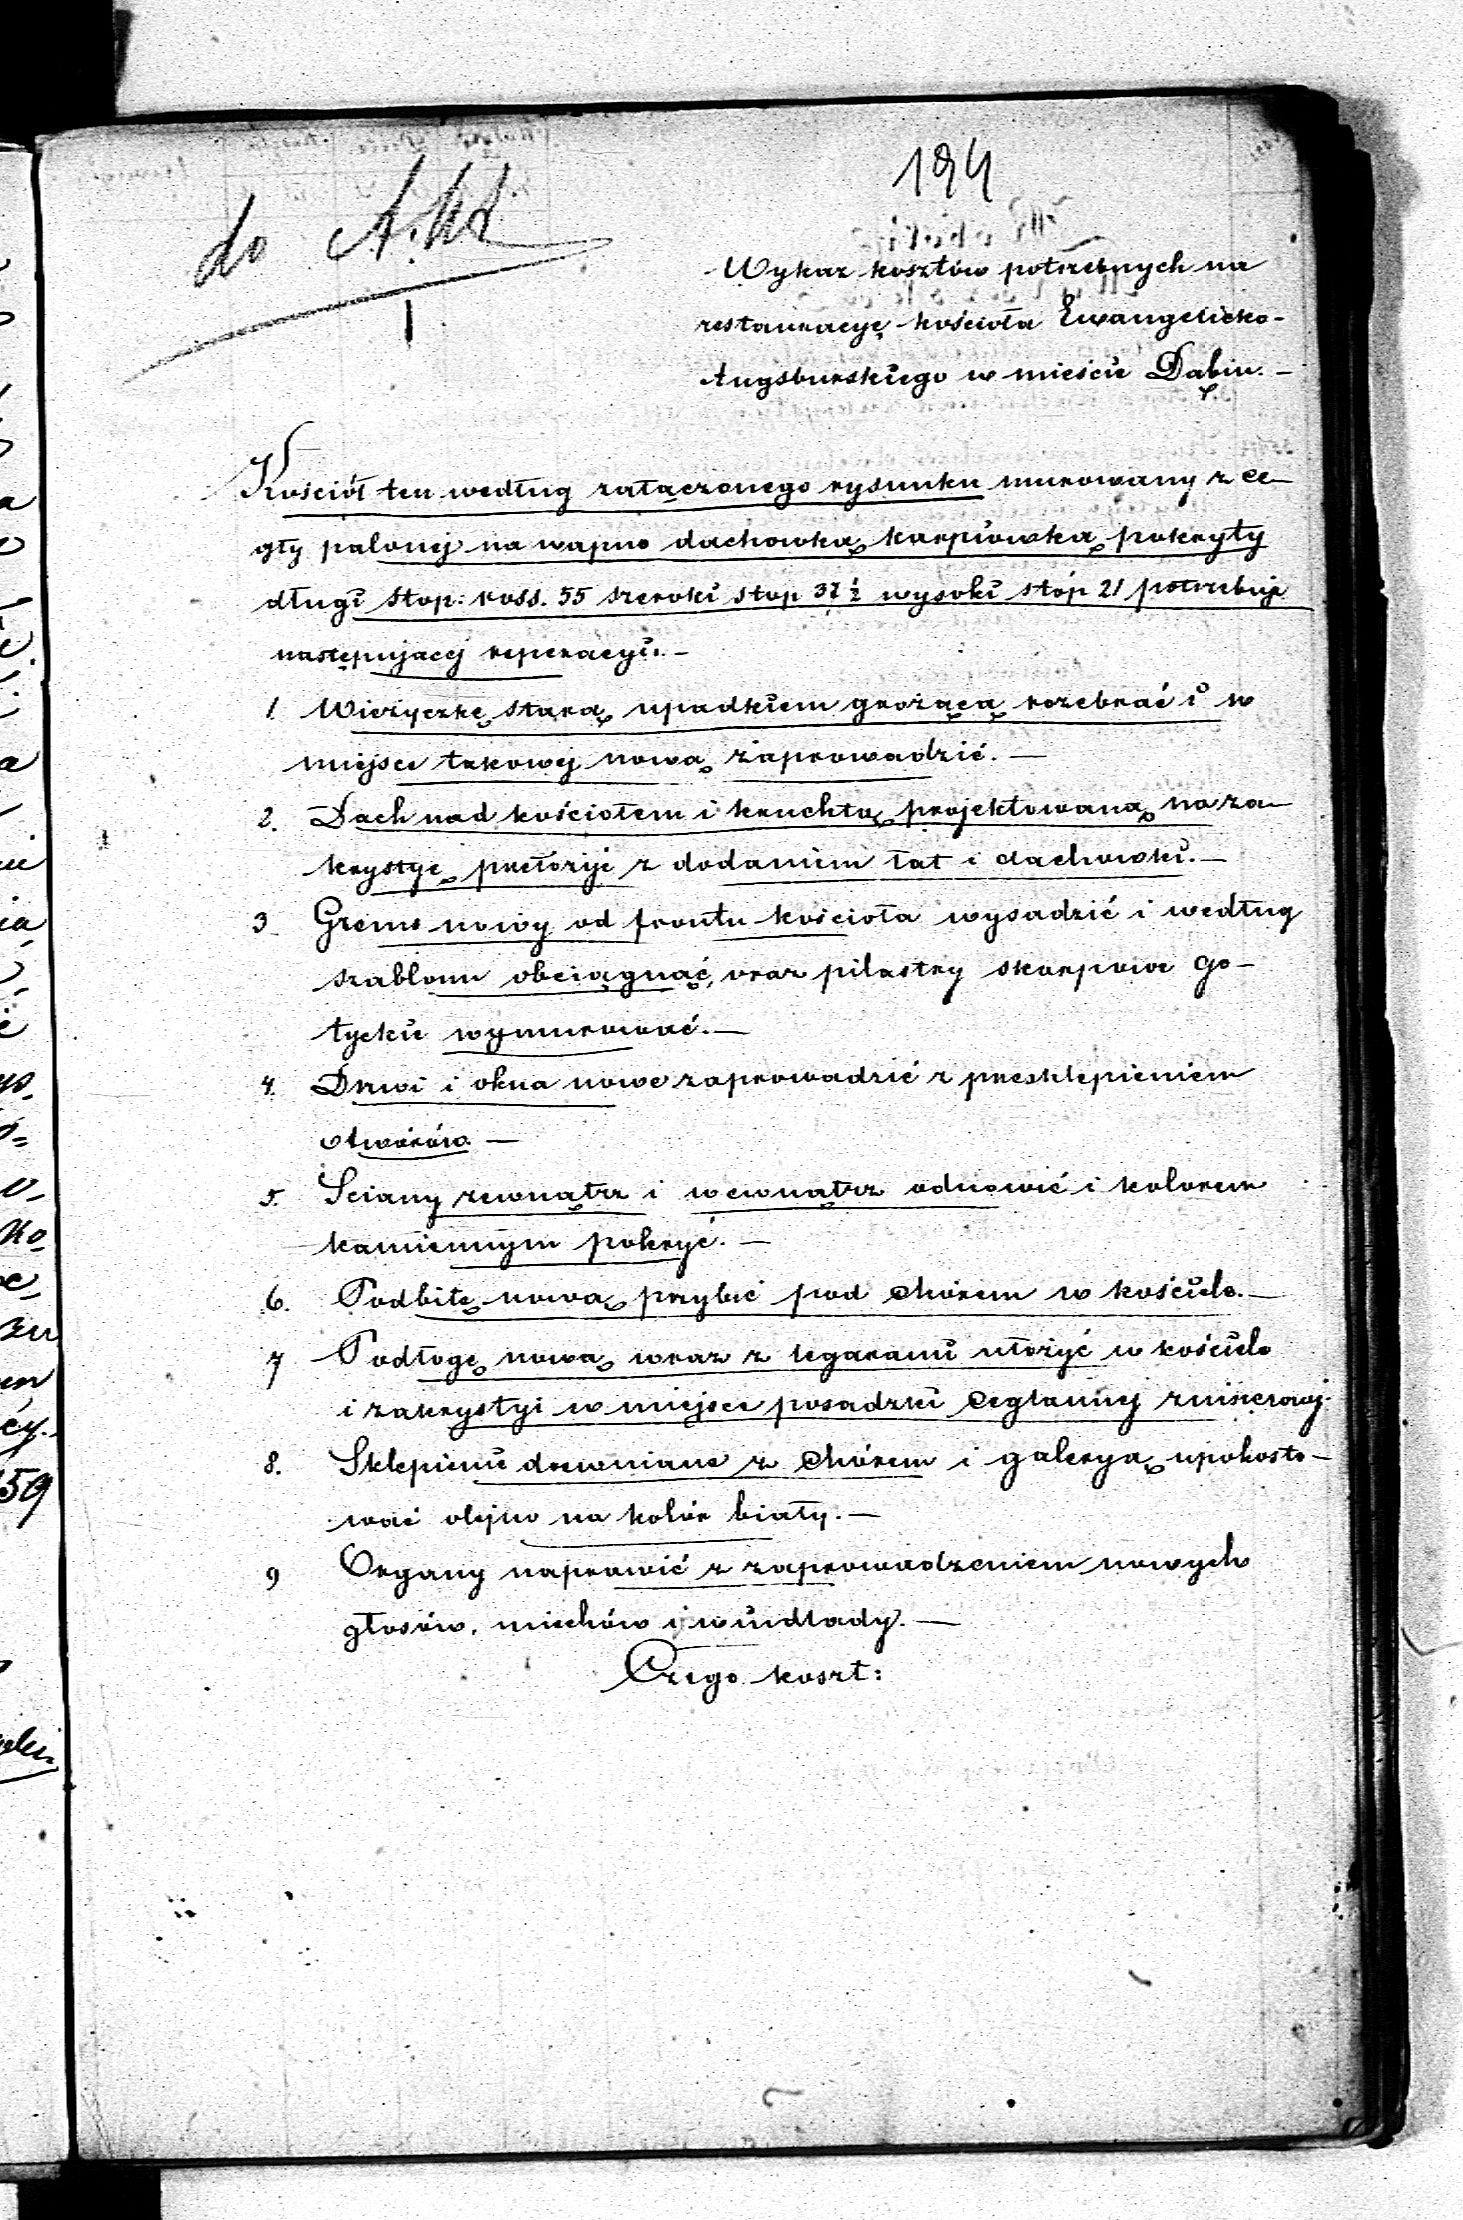 194
do Akt
Wykaz kosztów potrzebnych na
restauracyę kościoła Ewangelicko-
Augsburskiego w mieście Dąbiu. -
Kościół ten według załączonego rysunku murowany z ce-
gły palonej na wapno dachówką karpiówką pokryty
długi stóp: ross. 55 szeroki stóp 37 ½ wysoki stóp 21 potrzebuje
następującej reperacyi. -
1. Wieżyczkę starą upadkiem grożącą rozebrać i w
miejsce takowej nową zaprowadzić. -
2. Dach nad kościołem i kruchtą projektowaną na za-
krystyę przełożyć z dodaniem łat i dachówki. -
3 Gzems nowy od frontu kościoła wysadzić i według
szablonu obciągnąć, oraz pilastry skarpowe go-
tyckie wymurować. -
4. Drzwi i okna nowe zaprowadzić z przesklepieniem
otworów -
5. Sciany zewnątrz i wewnątrz odnowić i kolorem
kamiennym pokryć. -
6. Podbitę nową przybić pod chórem w kościele. -
7 Podłogę nową wraz z legarami ułożyć w kościele
i zakrystyi w miejsce posadzki ceglannej zniszczonej.
8. Sklepienie drewniane z chórem i galeryą upokosto-
wać olejno na kolór biały. -
9 Organy naprawić z zaprowadzeniem nowych
głosów, miechów i windlady. -
Czego koszt: